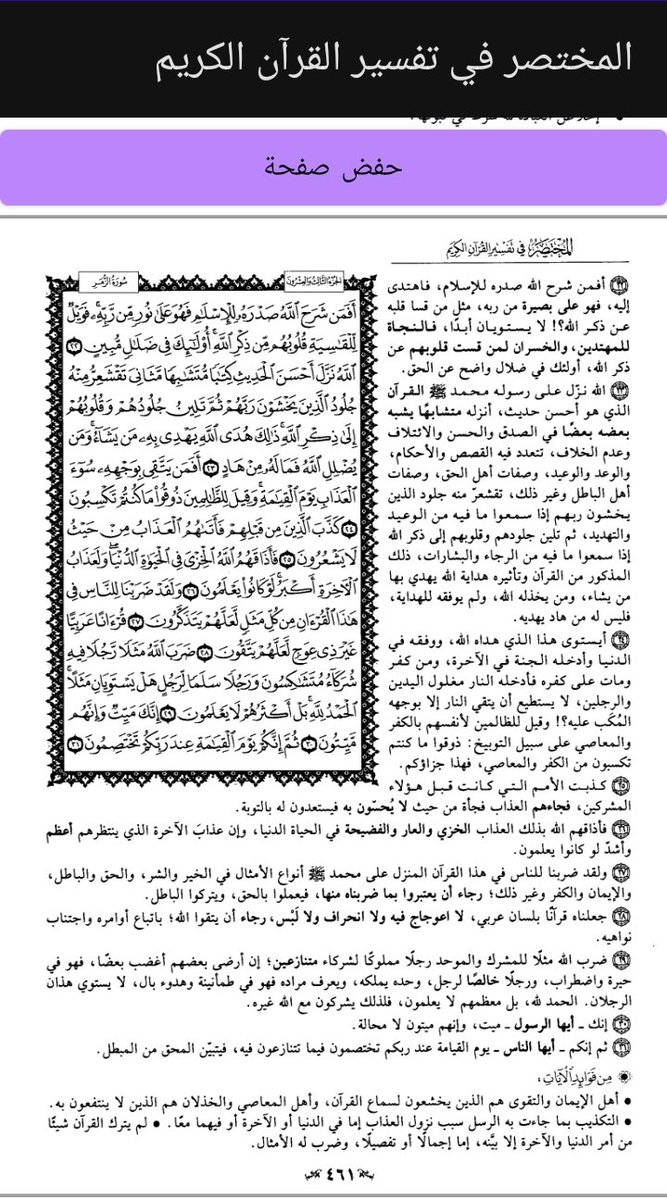 المختصر في تفسير القرآن الكريم
حفض صفحة
المختصر في تفسير القرآن الكريم
الجزء الثالث والعشرون
سورة الزمر
أَفَمَن شَرَحَ ٱللَّهُ صَدْرَهُۥ لِلْإِسْلَٰمِ فَهُوَ عَلَىٰ نُورٍ مِّن رَّبِّهِۦ فَوَيْلٌ
لِّلْقَٰسِيَةِ قُلُوبُهُم مِّن ذِكْرِ ٱللَّهِ أُوْلَٰٓئِكَ فِي ضَلَٰلٍ مُّبِينٍ ٢٢
ٱللَّهُ نَزَّلَ أَحْسَنَ ٱلْحَدِيثِ كِتَٰبًا مُّتَشَٰبِهًا مَّثَانِيَ تَقْشَعِرُّ مِنْهُ
جُلُودُ ٱلَّذِينَ يَخْشَوْنَ رَبَّهُمْ ثُمَّ تَلِينُ جُلُودُهُمْ وَقُلُوبُهُمْ
إِلَىٰ ذِكْرِ ٱللَّهِ ذَٰلِكَ هُدَى ٱللَّهِ يَهْدِي بِهِۦ مَن يَشَآءُ وَمَن
يُضْلِلِ ٱللَّهُ فَمَا لَهُۥ مِنْ هَادٍ ٢٣ أَفَمَن يَتَّقِي بِوَجْهِهِۦ سُوٓءَ
ٱلْعَذَابِ يَوْمَ ٱلْقِيَٰمَةِ وَقِيلَ لِلظَّٰلِمِينَ ذُوقُواْ مَا كُنتُمْ تَكْسِبُونَ
٢٤ كَذَّبَ ٱلَّذِينَ مِن قَبْلِهِمْ فَأَتَىٰهُمُ ٱلْعَذَابُ مِنْ حَيْثُ
لَا يَشْعُرُونَ ٢٥ فَأَذَاقَهُمُ ٱللَّهُ ٱلْخِزْيَ فِي ٱلْحَيَوٰةِ ٱلدُّنْيَا وَلَعَذَابُ
ٱلْأٓخِرَةِ أَكْبَرُ لَوْ كَانُواْ يَعْلَمُونَ ٢٦ وَلَقَدْ ضَرَبْنَا لِلنَّاسِ فِي
هَٰذَا ٱلْقُرْءَانِ مِن كُلِّ مَثَلٍ لَّعَلَّهُمْ يَتَذَكَّرُونَ ٢٧ قُرْءَانًا عَرَبِيًّا
غَيْرَ ذِي عِوَجٍ لَّعَلَّهُمْ يَتَّقُونَ ٢٨ ضَرَبَ ٱللَّهُ مَثَلًا رَّجُلًا فِيهِ
شُرَكَآءُ مُتَشَٰكِسُونَ وَرَجُلًا سَلَمًا لِّرَجُلٍ هَلْ يَسْتَوِيَانِ مَثَلًا
ٱلْحَمْدُ لِلَّهِ بَلْ أَكْثَرُهُمْ لَا يَعْلَمُونَ ٢٩ إِنَّكَ مَيِّتٌ وَإِنَّهُم
مَّيِّتُونَ ٣٠ ثُمَّ إِنَّكُمْ يَوْمَ ٱلْقِيَٰمَةِ عِندَ رَبِّكُمْ تَخْتَصِمُونَ ٣١
٢٢ أفمن شرح الله صدره للإسلام، فاهتدى
إليه، فهو على بصيرة من ربه، مثل من قسا قلبه
عن ذكر الله؟! لا يستويان أبدًا، فالنجاة
للمهتدين، والخسران لمن قست قلوبهم عن
ذكر الله، أولئك في ضلال واضح عن الحق.
٢٣ الله نزّل على رسوله محمد ﷺ القرآن
الذي هو أحسن حديث، أنزله متشابهًا يشبه
بعضه بعضًا في الصدق والحسن والائتلاف
وعدم الخلاف، تتعدد فيه القصص والأحكام،
والوعد والوعيد، وصفات أهل الحق، وصفات
أهل الباطل وغير ذلك، تقشعرّ منه جلود الذين
يخشون ربهم إذا سمعوا ما فيه من الوعيد
والتهديد، ثم تلين جلودهم وقلوبهم إلى ذكر الله
إذا سمعوا ما فيه من الرجاء والبشارات، ذلك
المذكور من القرآن وتأثيره هداية الله يهدي بها
من يشاء، ومن يخذله الله، ولم يوفقه للهداية،
فليس له من هاد يهديه.
٢٤ أيستوى هذا الذي هداه الله، ووفقه في
الدنيا وأدخله الجنة في الآخرة، ومن كفر
ومات على كفره فأدخله النار مغلول اليدين
والرجلين، لا يستطيع أن يتقي النار إلا بوجهه
المُكَب عليه؟! وقيل للظالمين لأنفسهم بالكفر
والمعاصي على سبيل التوبيخ: ذوقوا ما كنتم
تكسبون من الكفر والمعاصي، فهذا جزاؤكم.
٢٥ كذبت الأمم التي كانت قبل هؤلاء
المشركين، فجاءهم العذاب فجأة من حيث لا يُحسّون به فيستعدون له بالتوبة.
٢٦ فأذاقهم الله بذلك العذاب الخزي والعار والفضيحة في الحياة الدنيا، وإن عذابَ الآخرة الذي ينتظرهم أعظم
وأشدّ لو كانوا يعلمون.
٢٧ ولقد ضربنا للناس في هذا القرآن المنزل على محمد ﷺ أنواع الأمثال في الخير والشر، والحق والباطل،
والإيمان والكفر وغير ذلك؛ رجاء أن يعتبروا بما ضربناه منها، فيعملوا بالحق، ويتركوا الباطل.
٢٨ جعلناه قرآنًا بلسان عربي، لا اعوجاج فيه ولا انحراف ولا لَبْس، رجاء أن يتقوا الله؛ باتباع أوامره واجتناب
نواهيه.
٢٩ ضرب الله مثلًا للمشرك والموحد رجلًا مملوكًا لشركاء متنازعين؛ إن أرضى بعضهم أغضب بعضًا، فهو في
حيرة واضطراب، ورجلًا خالصًا لرجل، وحده يملكه، ويعرف مراده فهو في طمأنينة وهدوء بال، لا يستوي هذان
الرجلان. الحمد لله، بل معظمهم لا يعلمون، فلذلك يشركون مع الله غيره.
٣٠ إنك ـ أيها الرسول ـ ميت، وإنهم ميتون لا محالة.
٣١ ثم إنكم ـ أيها الناس ـ يوم القيامة عند ربكم تختصمون فيما تتنازعون فيه، فيتبيّن المحق من المبطل.
من فوائد الآيات:
• أهل الإيمان والتقوى هم الذين يخشعون لسماع القرآن، وأهل المعاصي والخذلان هم الذين لا ينتفعون به.
• التكذيب بما جاءت به الرسل سبب نزول العذاب إما في الدنيا أو الآخرة أو فيهما معًا. • لم يترك القرآن شيئًا
من أمر الدنيا والآخرة إلا بيَّنه، إما إجمالًا أو تفصيلًا، وضرب له الأمثال.
٤٦١